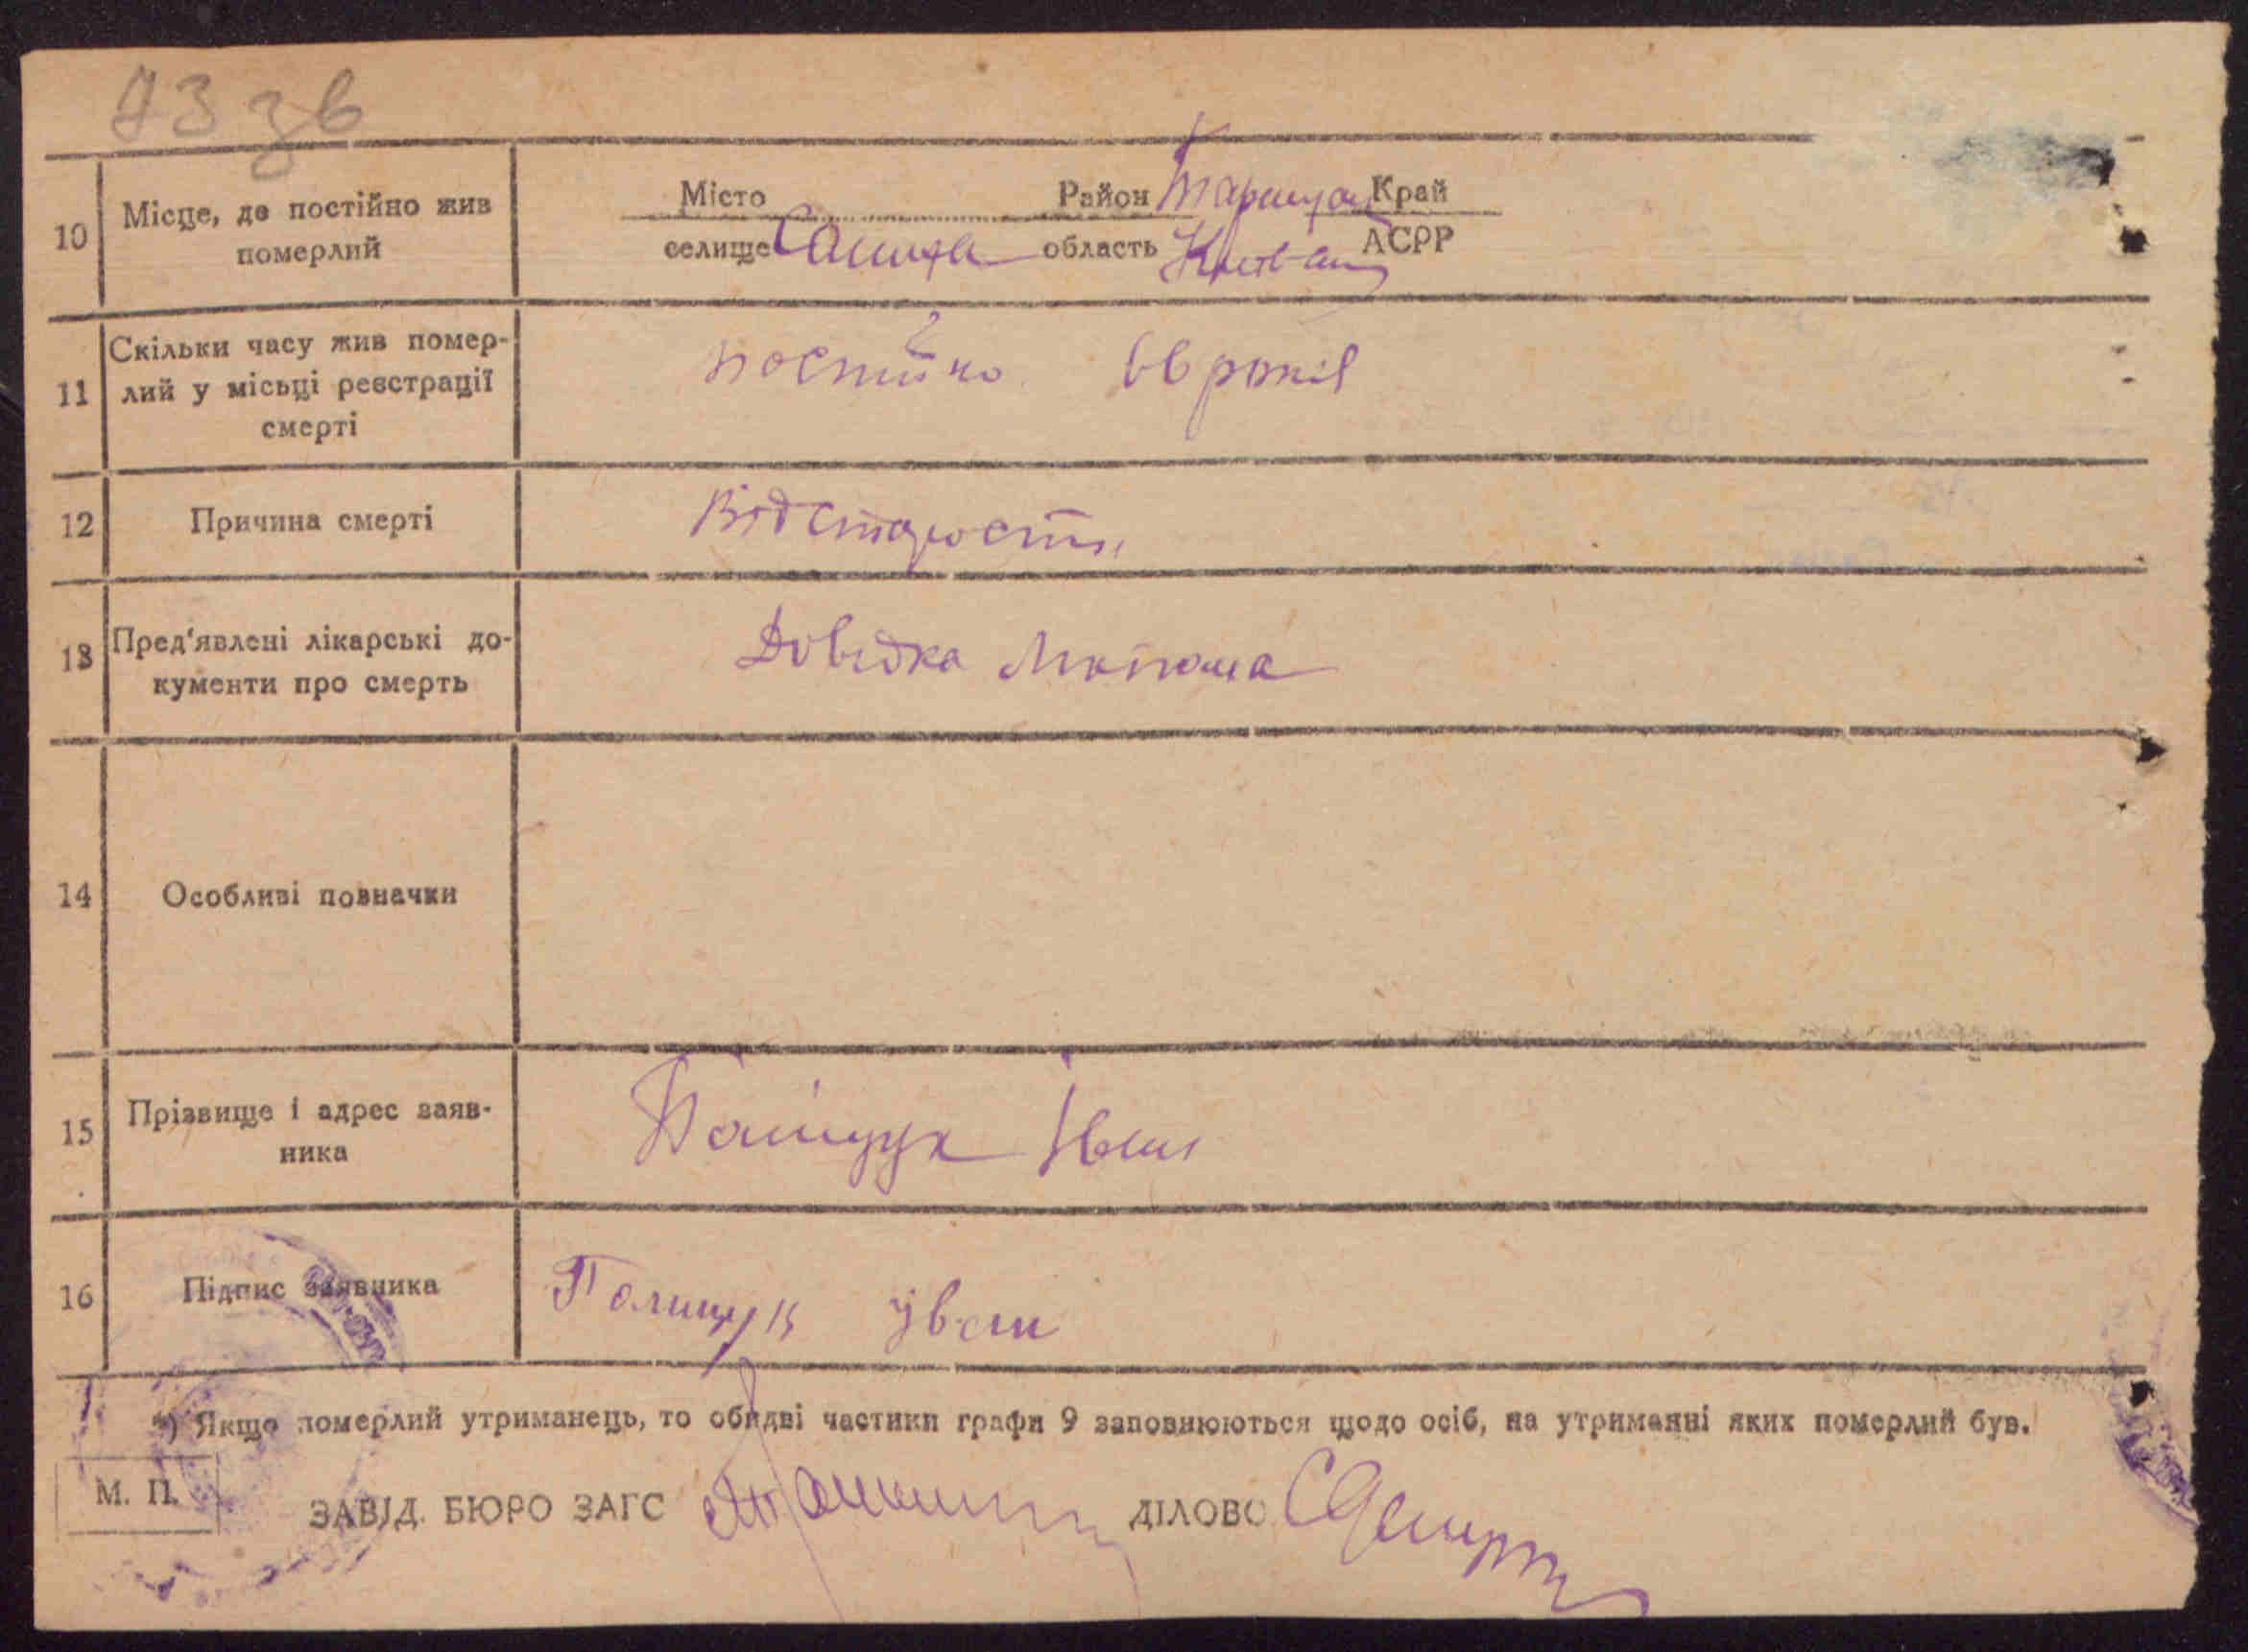 73 зв
10 Місце, де постійно жив померлий
Місто Район Таращан Край
селище область Київськ АСРР
11 Скільки часу жив помер-
лий у місьці реєстрації
смерті
постійно 66 років
12 Причина смерті Від старости
13 Пред'явлені лікарські до-
кументи про смерть
Довідка
14 Особливі позначки
15 Прізвище і адрес заяв-
ника
Поліщук Іван
16 Підпис заявника Полищук Іван
*) Якщо померлий утриманець, то обидві частини графи 9 заповнюються щодо осіб, на утриманні яких померлий був.
М. П.
ЗАВІД. БЮРО ЗАГС ДІЛОВО